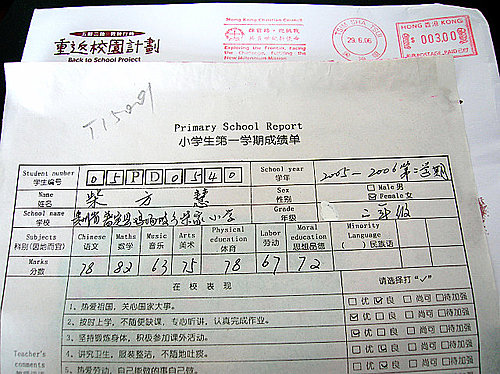 重返校園計劃
Back to School Project
Hong Kong Christian Council
Exploring the Frontier, facing
the Challenge, fulfilling the
New Millennium Mission
TSIM SHA TSUI
29.6.06
HONG KONG 香港
$003.00
POSTAGE PAID
T15001
Primary School Report
小学生第一学期成绩单
Student number
学生编号
05PD0540
School year
学年
2005-2006第二学期
Name
姓名
柴方慧
Sex
性别
Male 男
Female 女
School name
学校
小学
Grade
年级
三年级
Subjects
科别(因地而宜)
Chinese
语文
Maths
数学
Music
音乐
Arts
美术
Physical
education
体育
Labor
劳动
Moral
education
思想品德
Minority
Language
( )民族语
Marks
分数
78 82 63 75 78 67 72
在校表现
请选择打"✓"
1、热爱祖国，关心国家大事。
优 良 尚可 待加强
2、按时上学，不随便缺课，专心听讲，认真完成作业。
优 良 尚可 待加强
3、坚持锻炼身体，积极参加课外活动。
优 良 尚可 待加强
4、讲究卫生，服装整洁，不随地吐痰。
优 良 尚可 待加强
5、热爱劳动，自己能做的事自己做。
Teacher's
comments